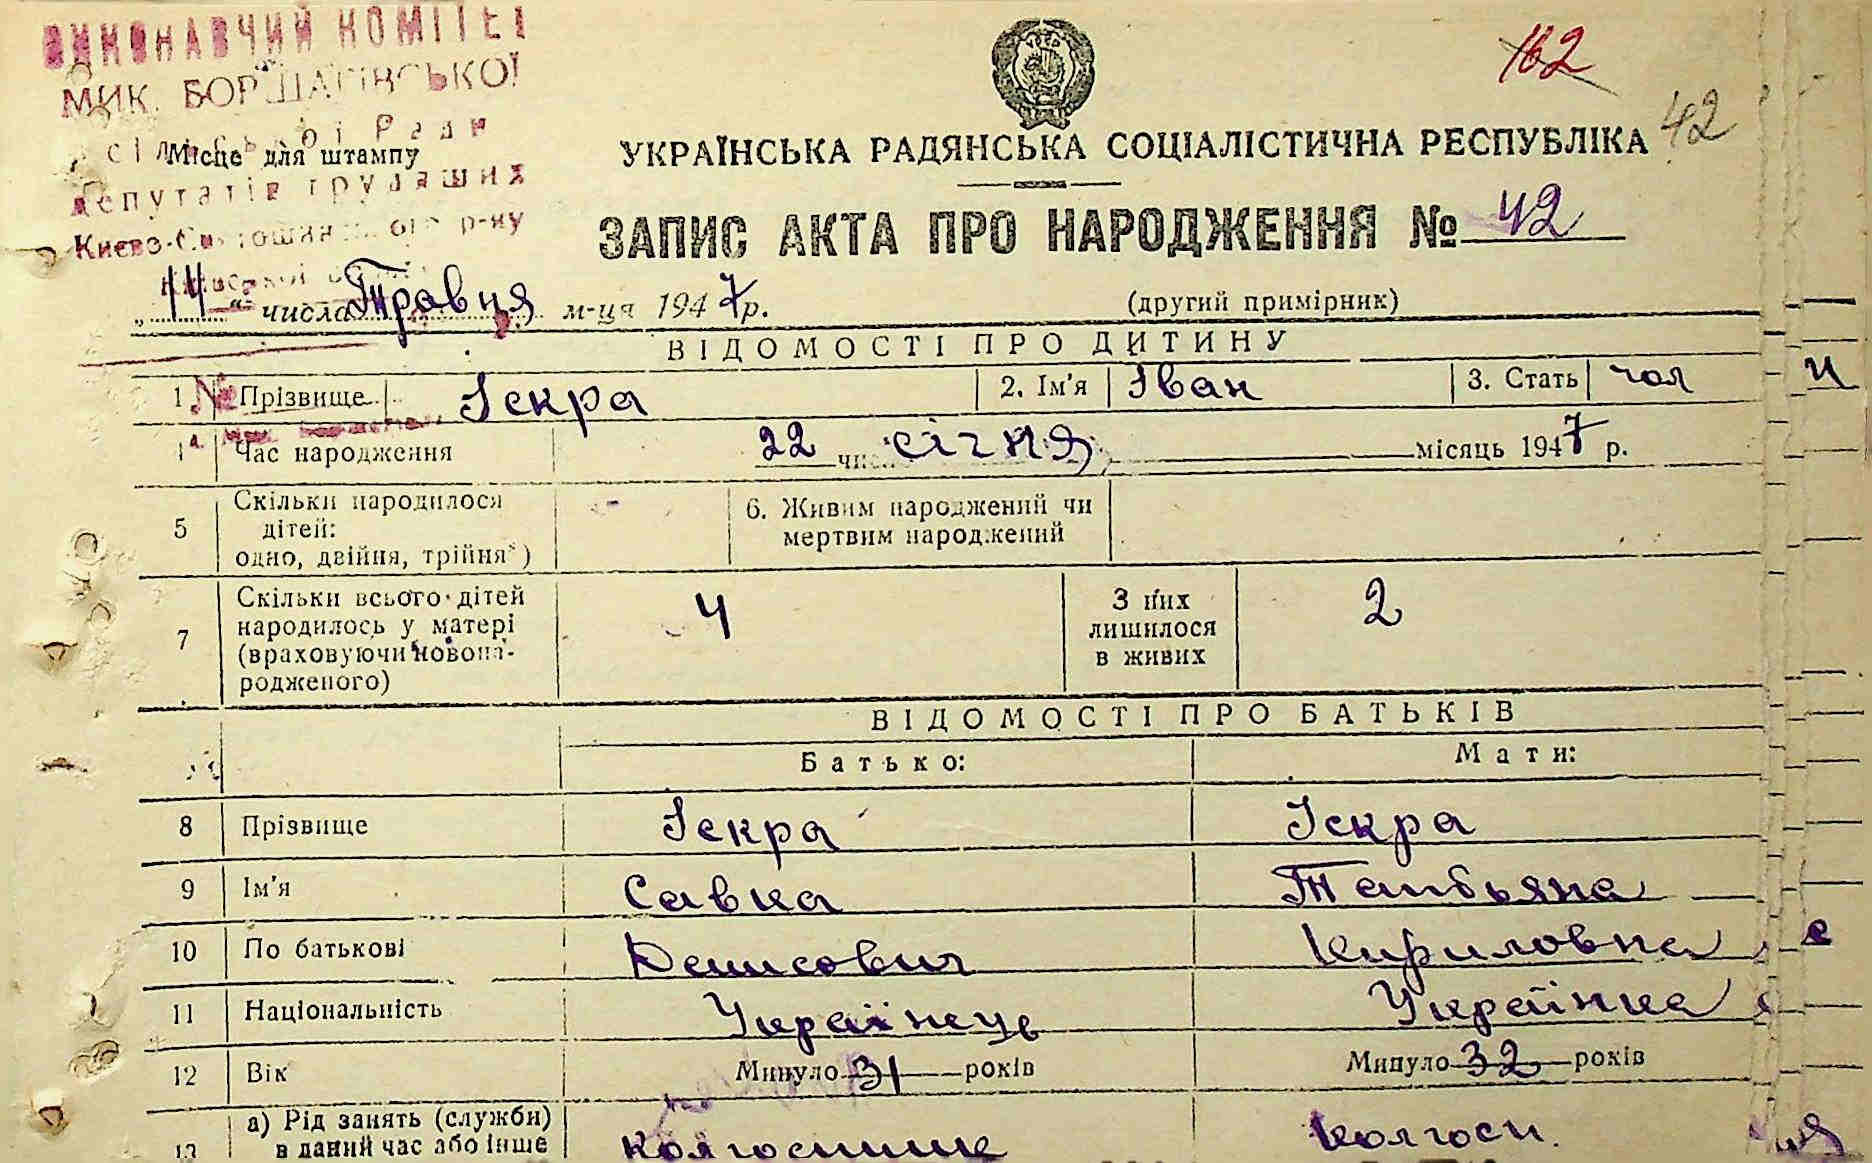 ВИКОНАВЧИЙ КОМІТЕТ
МИК. БОРЩАГІВСЬКОЇ
сільської Ради
Місце для штампу
депутатів трудящих
Києво-Святошинського р-ну
Київської
162
42
УКРАЇНСЬКА РАДЯНСЬКА СОЦІАЛІСТИЧНА РЕСПУБЛІКА
ЗАПИС АКТА ПРО НАРОДЖЕННЯ № 42
„14“ числа Травця м-ця 1947 р.
(другий примірник)
ВІДОМОСТІ ПРО ДИТИНУ
1 Прізвище Іскра 2. Ім'я Іван 3. Стать чол
Час народження 22 січня місяць 1947 р.
5 Скільки народилося дітей: одно, двійня, трійня*)
6. Живим народжений чи мертвим народжений
7 Скільки всього дітей народилось у матері (враховуючи новонародженого) 4
З них лишилося в живих 2
ВІДОМОСТІ ПРО БАТЬКІВ
Батько: Мати:
8 Прізвище Іскра Іскра
9 Ім'я Савка Татьяна
10 По батькові Денисович Кириловна
11 Національність Українець Українка
12 Вік Минуло 31 років Минуло 32 років
13 а) Рід занять (служби) в даний час або інше колгоспник колгосп.